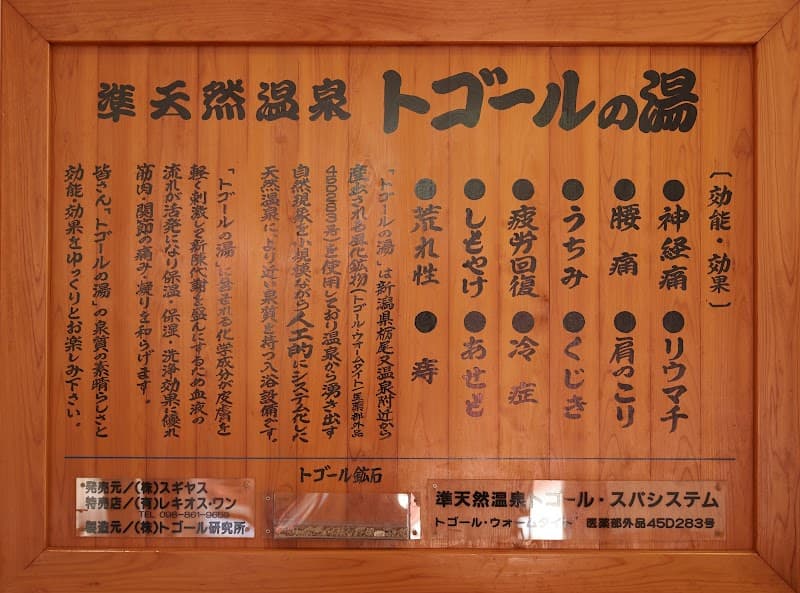 準天然温泉 トゴールの湯
〔効能・効果〕
●神経痛 ●リウマチ
●腰痛 ●肩のこり
●うちみ ●くじき
●疲労回復 ●冷症
●しもやけ ●あせも
●荒れ性 ●痔
「トゴールの湯」は新潟県栃尾又温泉附近から
産出される風化鉱物(トゴール・ウォームタイト)医薬部外品
号)を使用しており温泉から湧き出す
自然現象を小規模ながら人工的にシステム化した
天然温泉により近い泉質を持つ入浴設備です。
「トゴールの湯」に含まれる化学成分が皮膚を
軽く刺激し新陳代謝を盛んにするため血液の
流れが活発になり保温・保湿・洗浄効果に優れ
筋肉・関節の痛み・凝りを和らげます。
皆さん「トゴールの湯」の泉質の素晴らしさと
効能・効果をゆっくりとお楽しみ下さい。
トゴール鉱石
発売元/(株)スギヤス
特売店/(有)レキオス・ワン
TEL
製造元/(株)トゴール研究所
準天然温泉トゴール・スパシステム
トゴール・ウォームタイト 医薬部外品45D283号